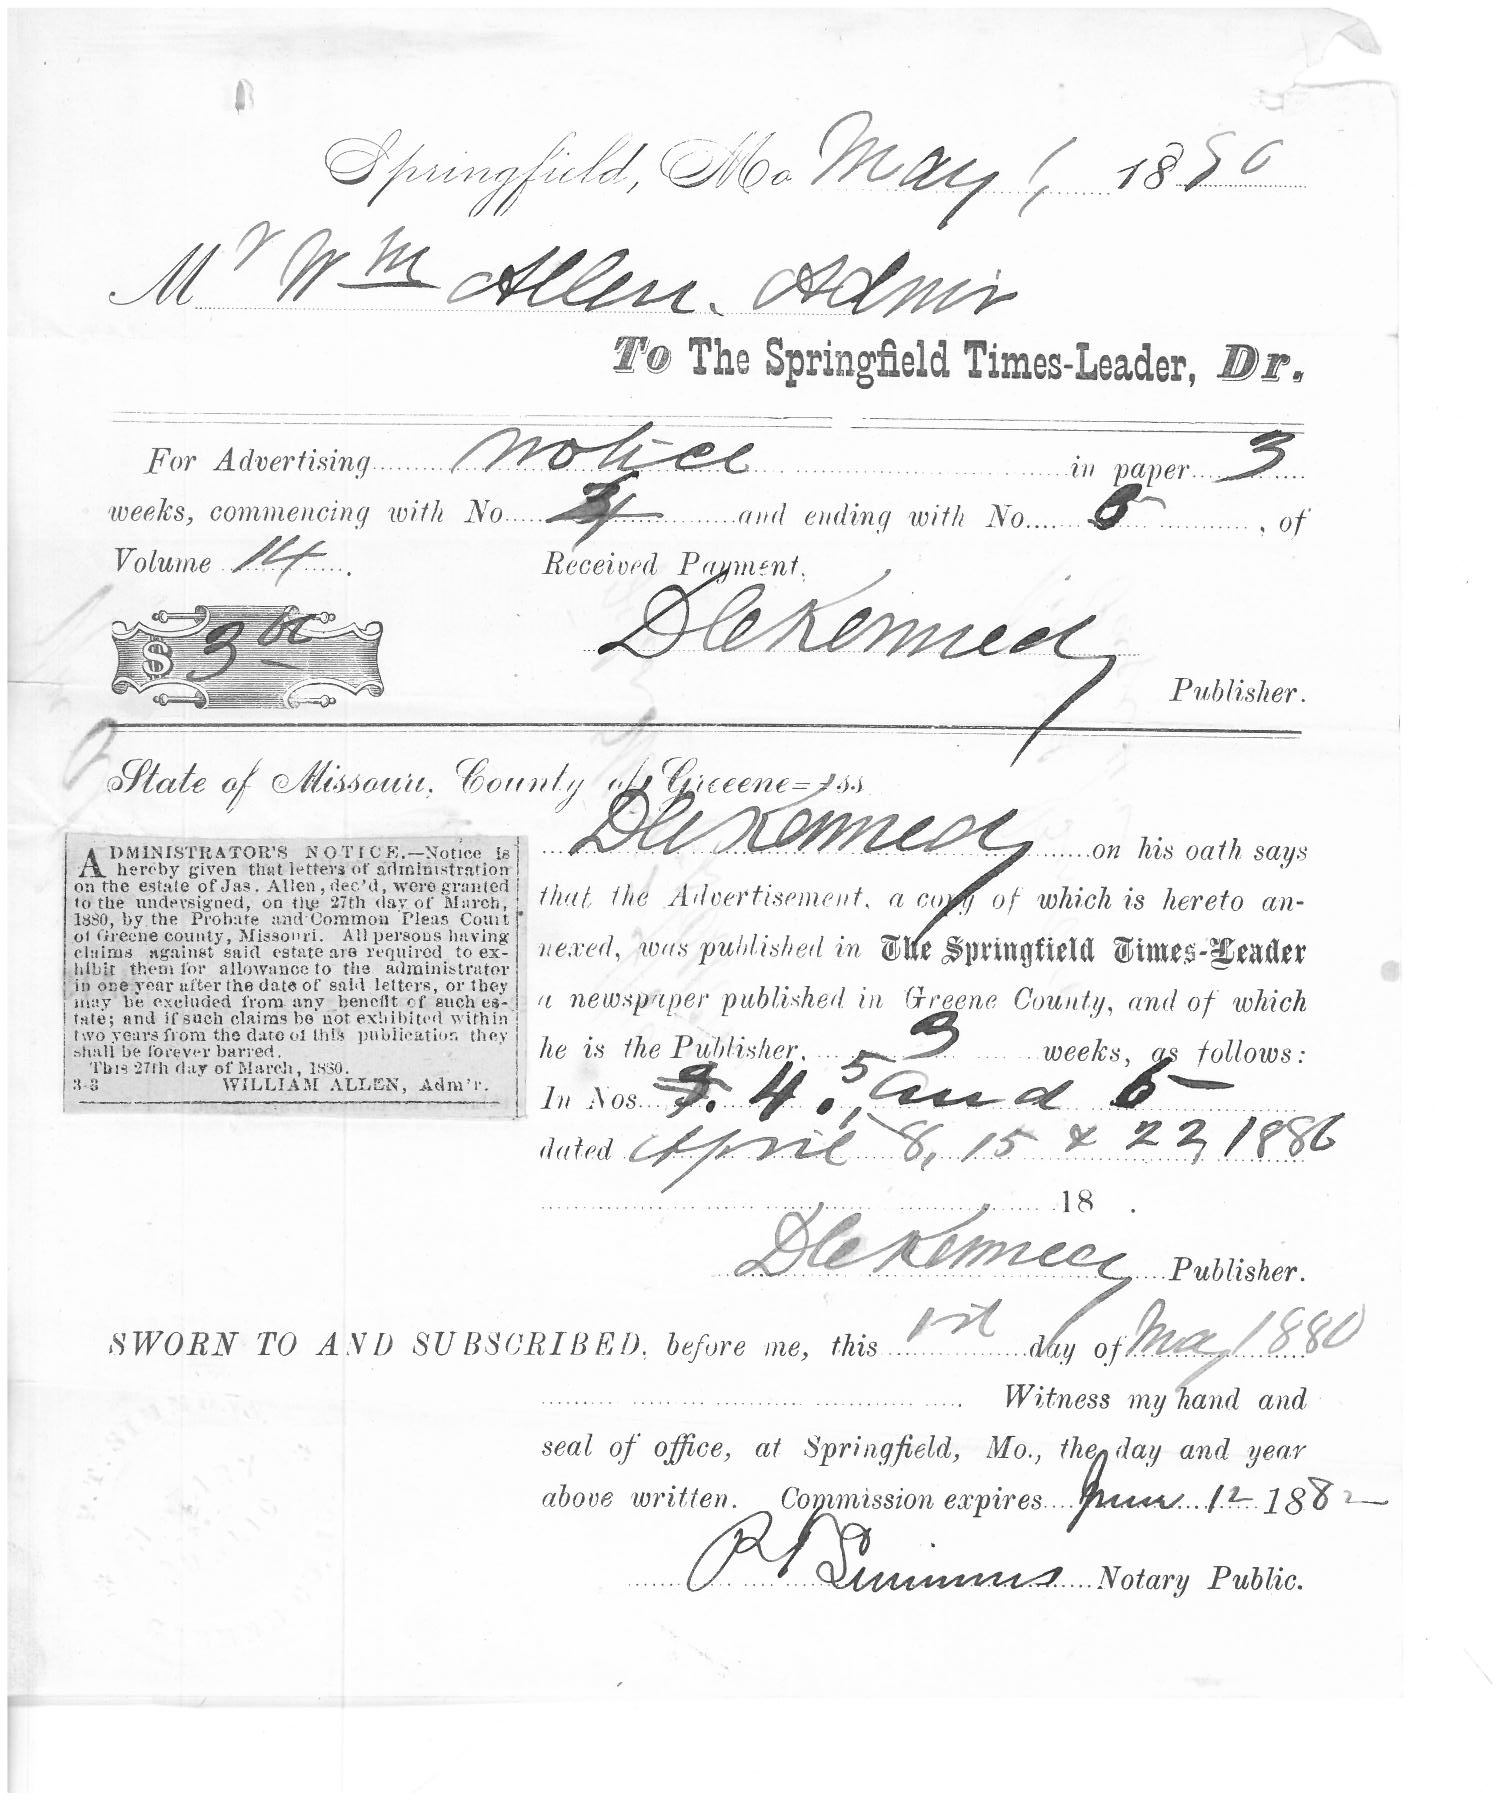 Springfield, Mo May 1, 1880
Mr Wm Allen. Admir
To The Springfield Times-Leader, Dr.
For Advertising notice in paper 3
weeks, commencing with No and ending with No. , of
Volume 14. Received Payment,
$ 3 00 D C Kennedy
Publisher.
State of Missouri, County of Greeene= ss
ADMINISTRATOR'S NOTICE.—Notice is
hereby given that letters of administration
on the estate of Jas. Allen, dec'd, were granted
to the undersigned, on the 27th day of March,
1880, by the Probate and Common Pleas Court
of Greene county, Missouri. All persons having
claims against said estate are required to ex-
hibit them for allowance to the administrator
in one year after the date of said letters, or they
may be excluded from any benefit of such es-
tate; and if such claims be not exhibited within
two years from the date of this publication they
shall be forever barred.
This 27th day of March, 1880.
3-3 WILLIAM ALLEN, Adm'r.
D C Kennedy on his oath says
that the Advertisement, a copy of which is hereto an-
nexed, was published in The Springfield Times-Leader
a newspaper published in Greene County, and of which
he is the Publisher, 3 weeks, as follows:
In Nos. 4. 5, and
dated April 8, 15 & 22, 1880
18 .
D C Kennedy Publisher.
SWORN TO AND SUBSCRIBED, before me, this 1st day of May 1880
. Witness my hand and
seal of office, at Springfield, Mo., the day and year
above written. Commission expires June 12 1882
Simmons Notary Public.